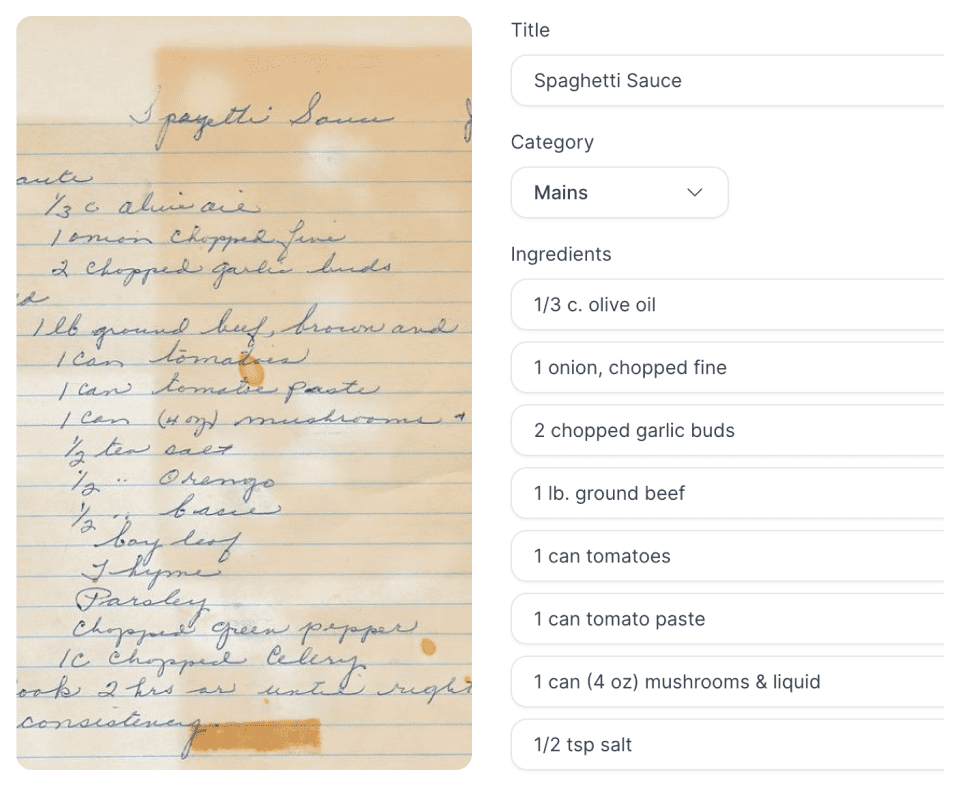 Spagetti Sauce
aute
1/3 c olive oil
1 onion chopped fine
2 chopped garlic buds
d
1 lb ground beef, brown and
1 can tomatoes
1 can tomatoe paste
1 can (4 oz) mushrooms +
1/2 tea salt
1/2 " Orengo
1/2 " basil
bay leaf
Thyme
Parsley
Chopped green pepper
1c chopped Celery
ook 2 hrs or until right
consistency.
Title
Spaghetti Sauce
Category
Mains
Ingredients
1/3 c. olive oil
1 onion, chopped fine
2 chopped garlic buds
1 lb. ground beef
1 can tomatoes
1 can tomato paste
1 can (4 oz) mushrooms & liquid
1/2 tsp salt